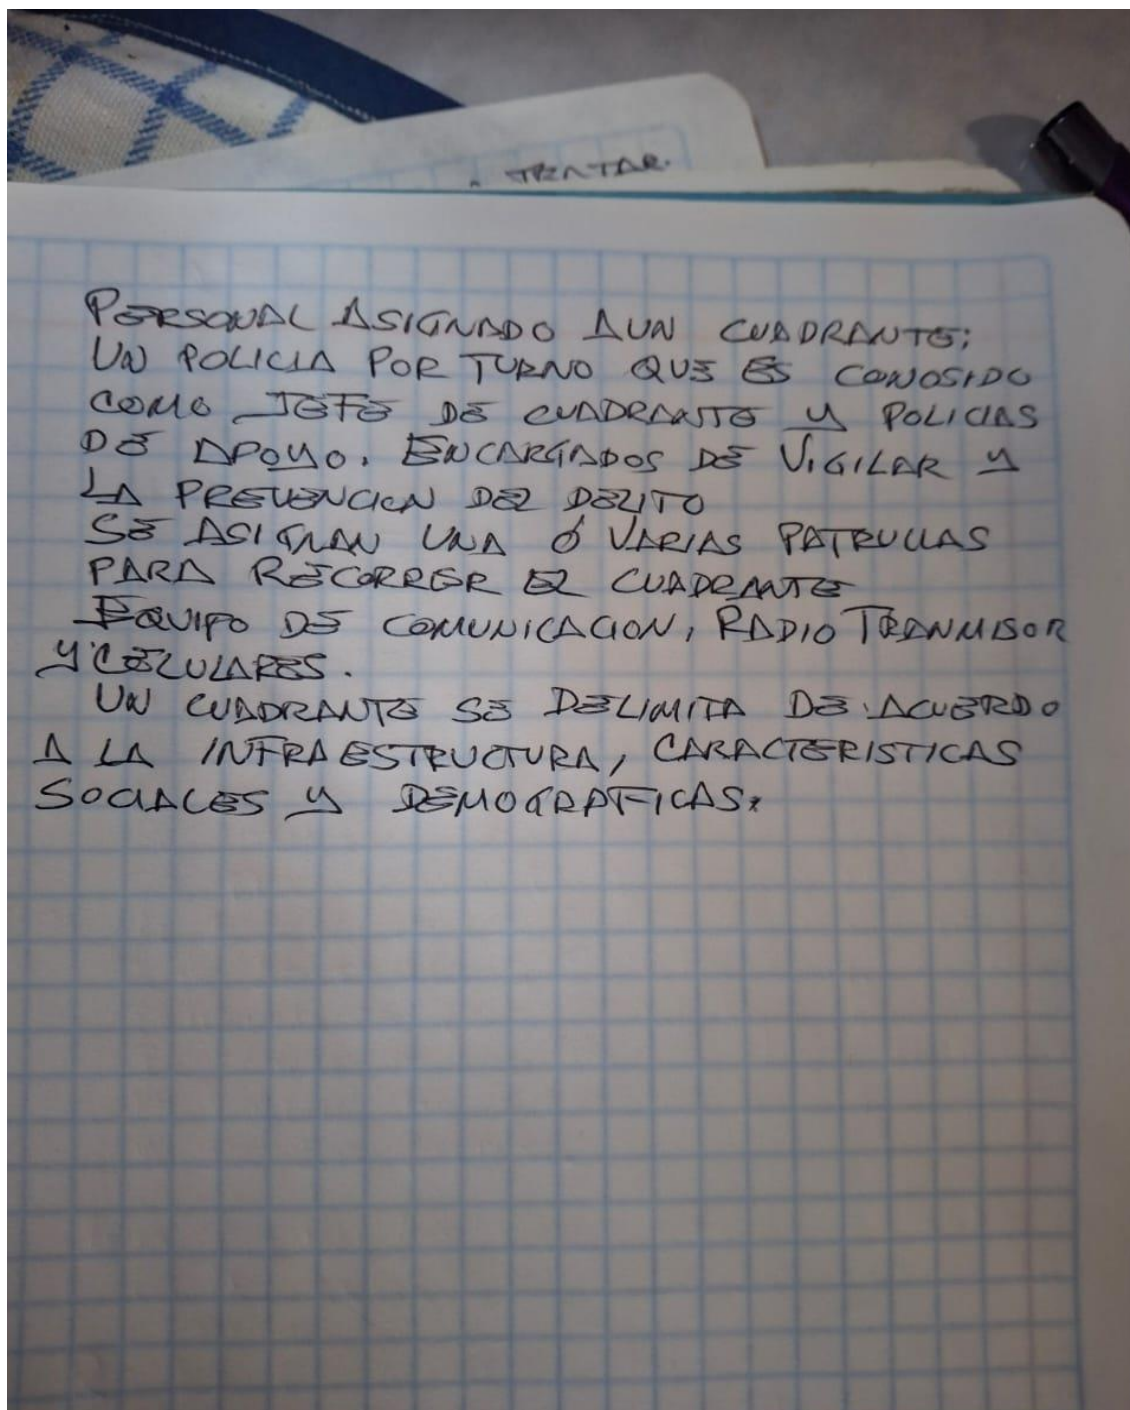 TRATAR.
PERSONAL ASIGNADO AUN CUADRANTE;
UN POLICIA POR TURNO QUE ES CONOSIDO
COMO JEFE DE CUADRANTE Y POLICIAS
DE APOYO. ENCARGADOS DE VIGILAR Y
LA PREVENCION DEL DELITO
SE ASIGNAN UNA Ó VARIAS PATRULLAS
PARA RECORRER EL CUADRANTE
EQUIPO DE COMUNICACION, RADIO TRANMISOR
Y CELULARES.
UN CUADRANTE SE DELIMITA DE ACUERDO
A LA INFRAESTRUCTURA, CARACTERISTICAS
SOCIALES Y DEMOGRAFICAS.